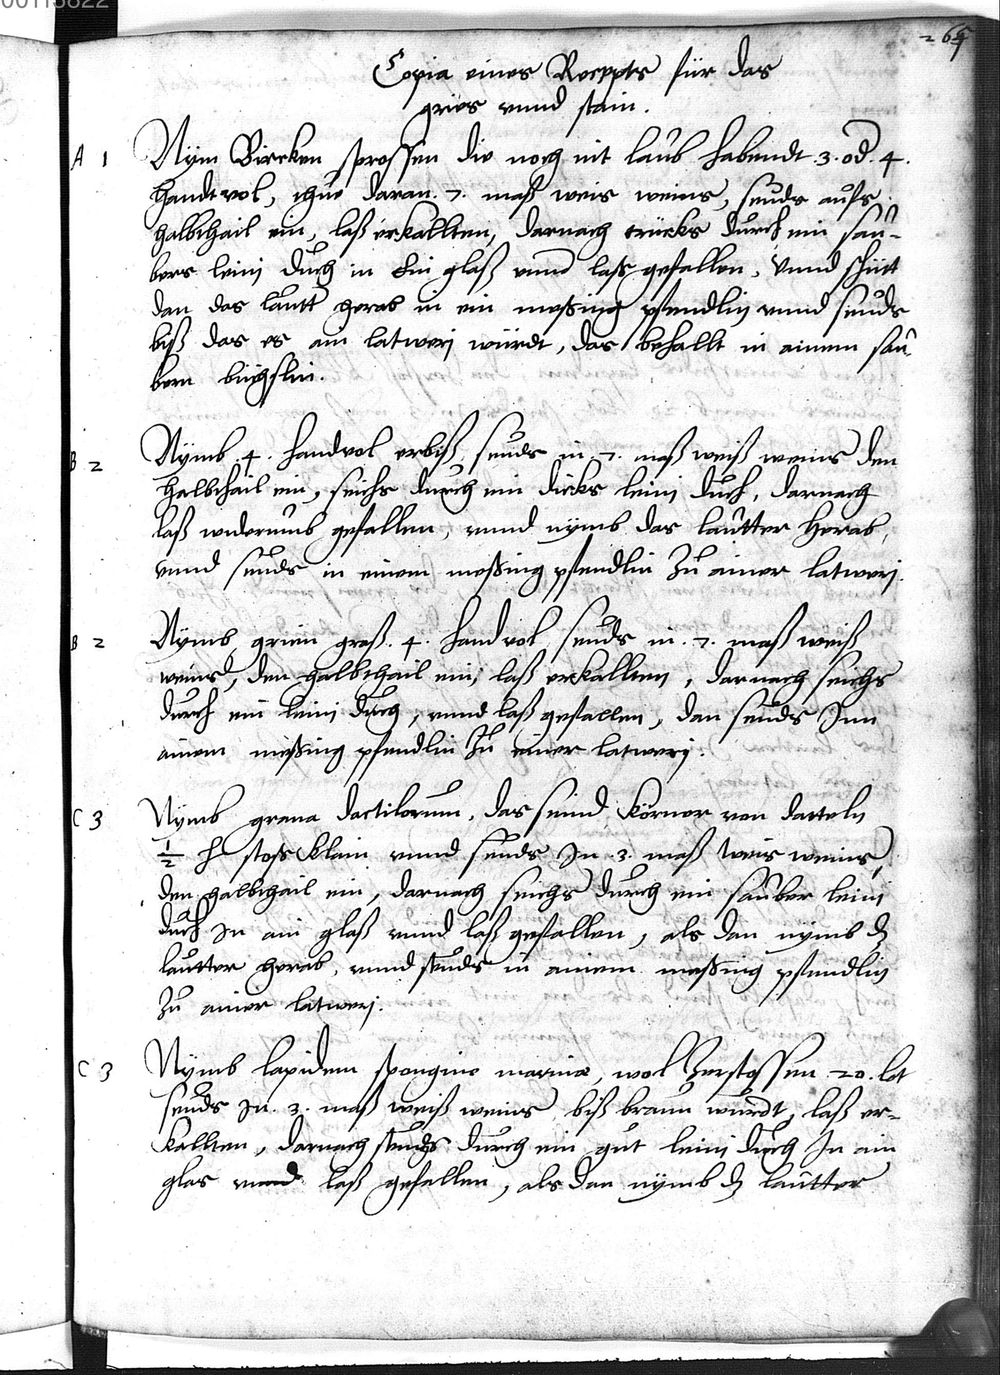 00113822
264
Copia eines Recepts für das
gries vnnd stain.
A 1 Nÿm Bircken sprossen die noch nit laub habendt .3. od .4.
handtvol, thue daran .7. maß weis weins, seuds aufs
halbthail ein, laß erkallten, darnach trücks durch ein sau-
bers leinj duch in ein glaß vnnd laß gefallen, Vnnd schütt
dan das lautt herab in ein meßing pfendlin vnnd seuds
biß das es ain latwerj würdt, das behallt in ainem sau
bern büchslin.
B 2 Nÿmb .4. handvol erbiß, seuds in .7. maß weiß weins den
halbthail ein, seichs durch ein dicks leinj duch, darnach
laß widerumb gefallen, vnnd nÿmb das lautter herab,
vnnd seuds in einem meßing pfendlin Zu ainer latwerj.
B 2 Nÿmb grien graß .4. handvol seuds in .7. maß weiß
weins, den halbthail ein, laß erkallten, darnach seichs
durch ein leinj duch, vnnd laß gefallen, dan seuds Inn
ainem meßing pfendlin Zu einer latwerj.
C 3 Nÿmb grana dactilorum, das seind Körner von datteln
½ stoss klain vnnd seuds In .3. maß weis weins,
den halbthail ein, darnach seichs durch ein sauber leinj
duch In ain glaß vnnd laß gefallen, als dan nÿmb dz
lautter herab, vnnd seuds in ainem meßing pfendlin
Zu ainer latwerj.
C 3 Nÿmb lapidem spongine marinæ, wol Zerstossen 20. lot
seuds In .3. maß weiß weins biß braun wurdt, laß er-
kallten, darnach seichs durch ein gut leinj duch In ain
glas vnnd laß gefallen, als dan nÿmb dz lautter